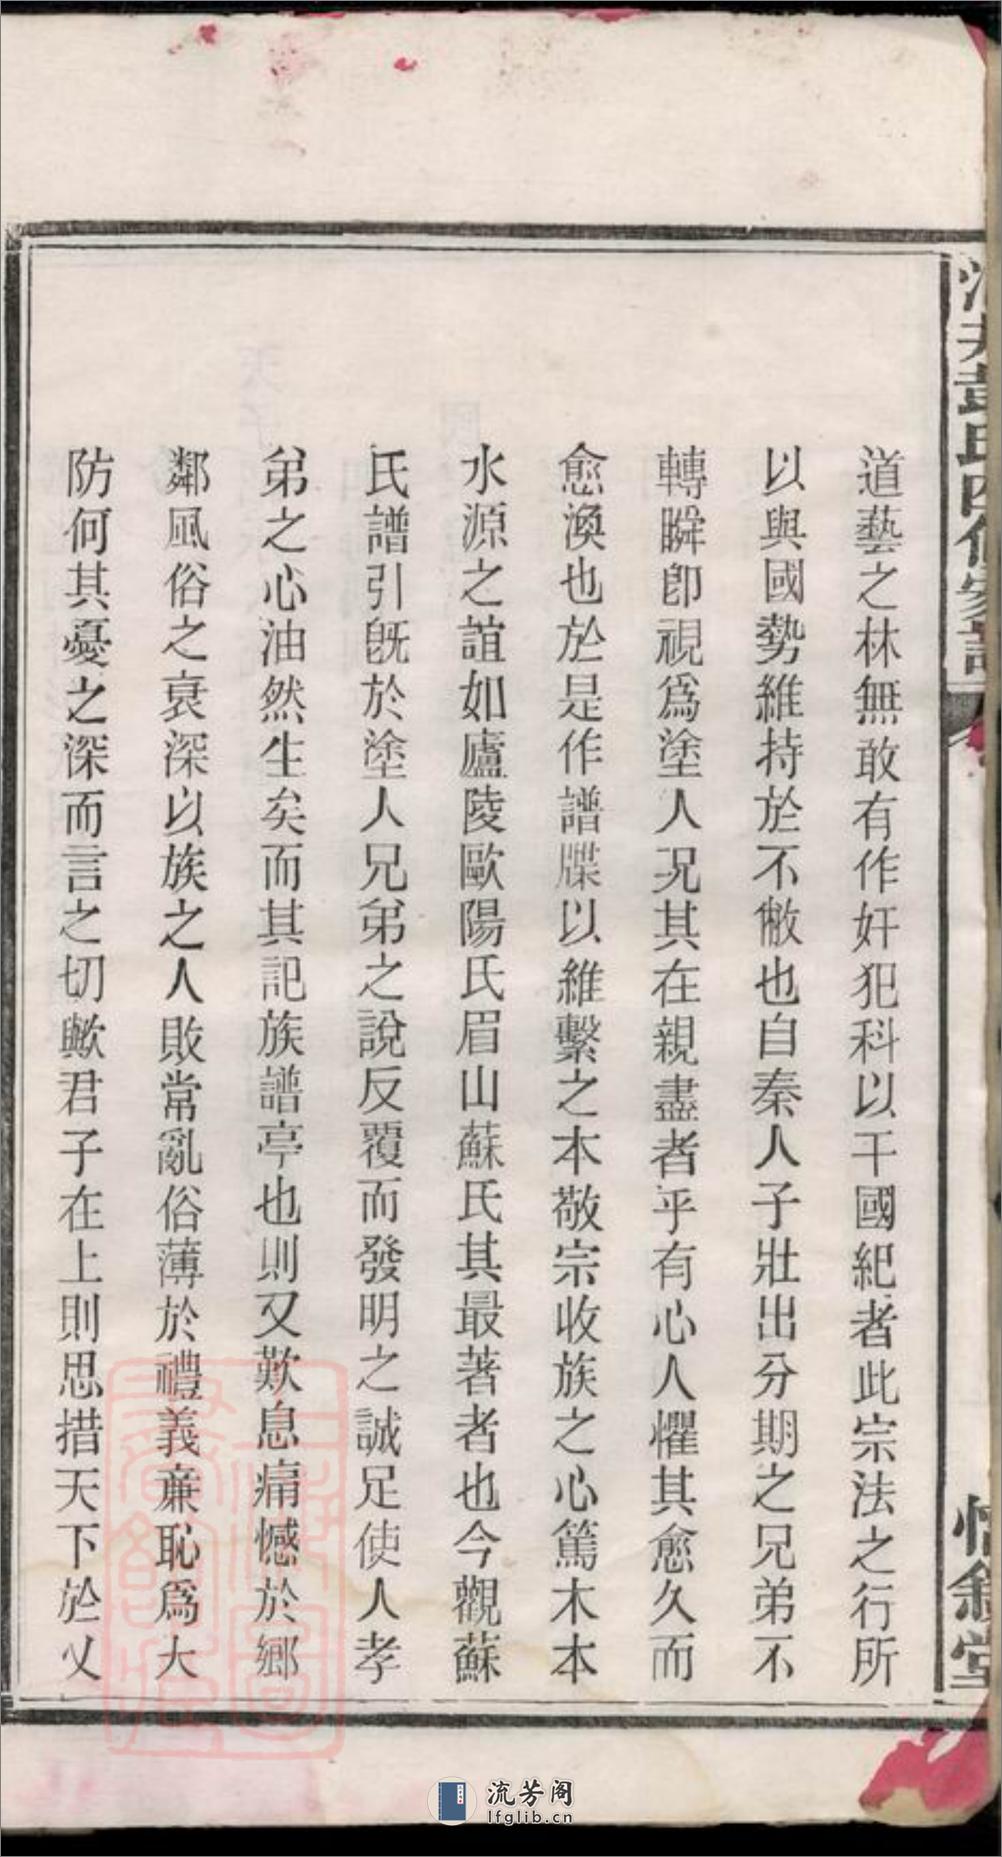 道藝之林無敢有作奸犯科以干國紀者此宗法之行所
以與國勢維持於不敝也自秦人子壯出分期之兄弟不
轉瞬卽視爲塗人况其在親盡者乎有心人懼其愈久而
愈渙也於是作譜牒以維繫之本敬宗收族之心篤木本
水源之誼如廬陵歐陽氏眉山蘇氏其最著者也今觀蘇
氏譜引旣於塗人兄弟之說反覆而發明之誠足使人孝
弟之心油然生矣而其記族譜亭也則又歎息痛憾於鄉
鄰風俗之衰深以族之人敗常亂俗薄於禮義亷恥爲大
防何其憂之深而言之切歟君子在上則思措天下於乂
彭氏四修家譜
惇敘堂
流芳阁
lfglib.cn